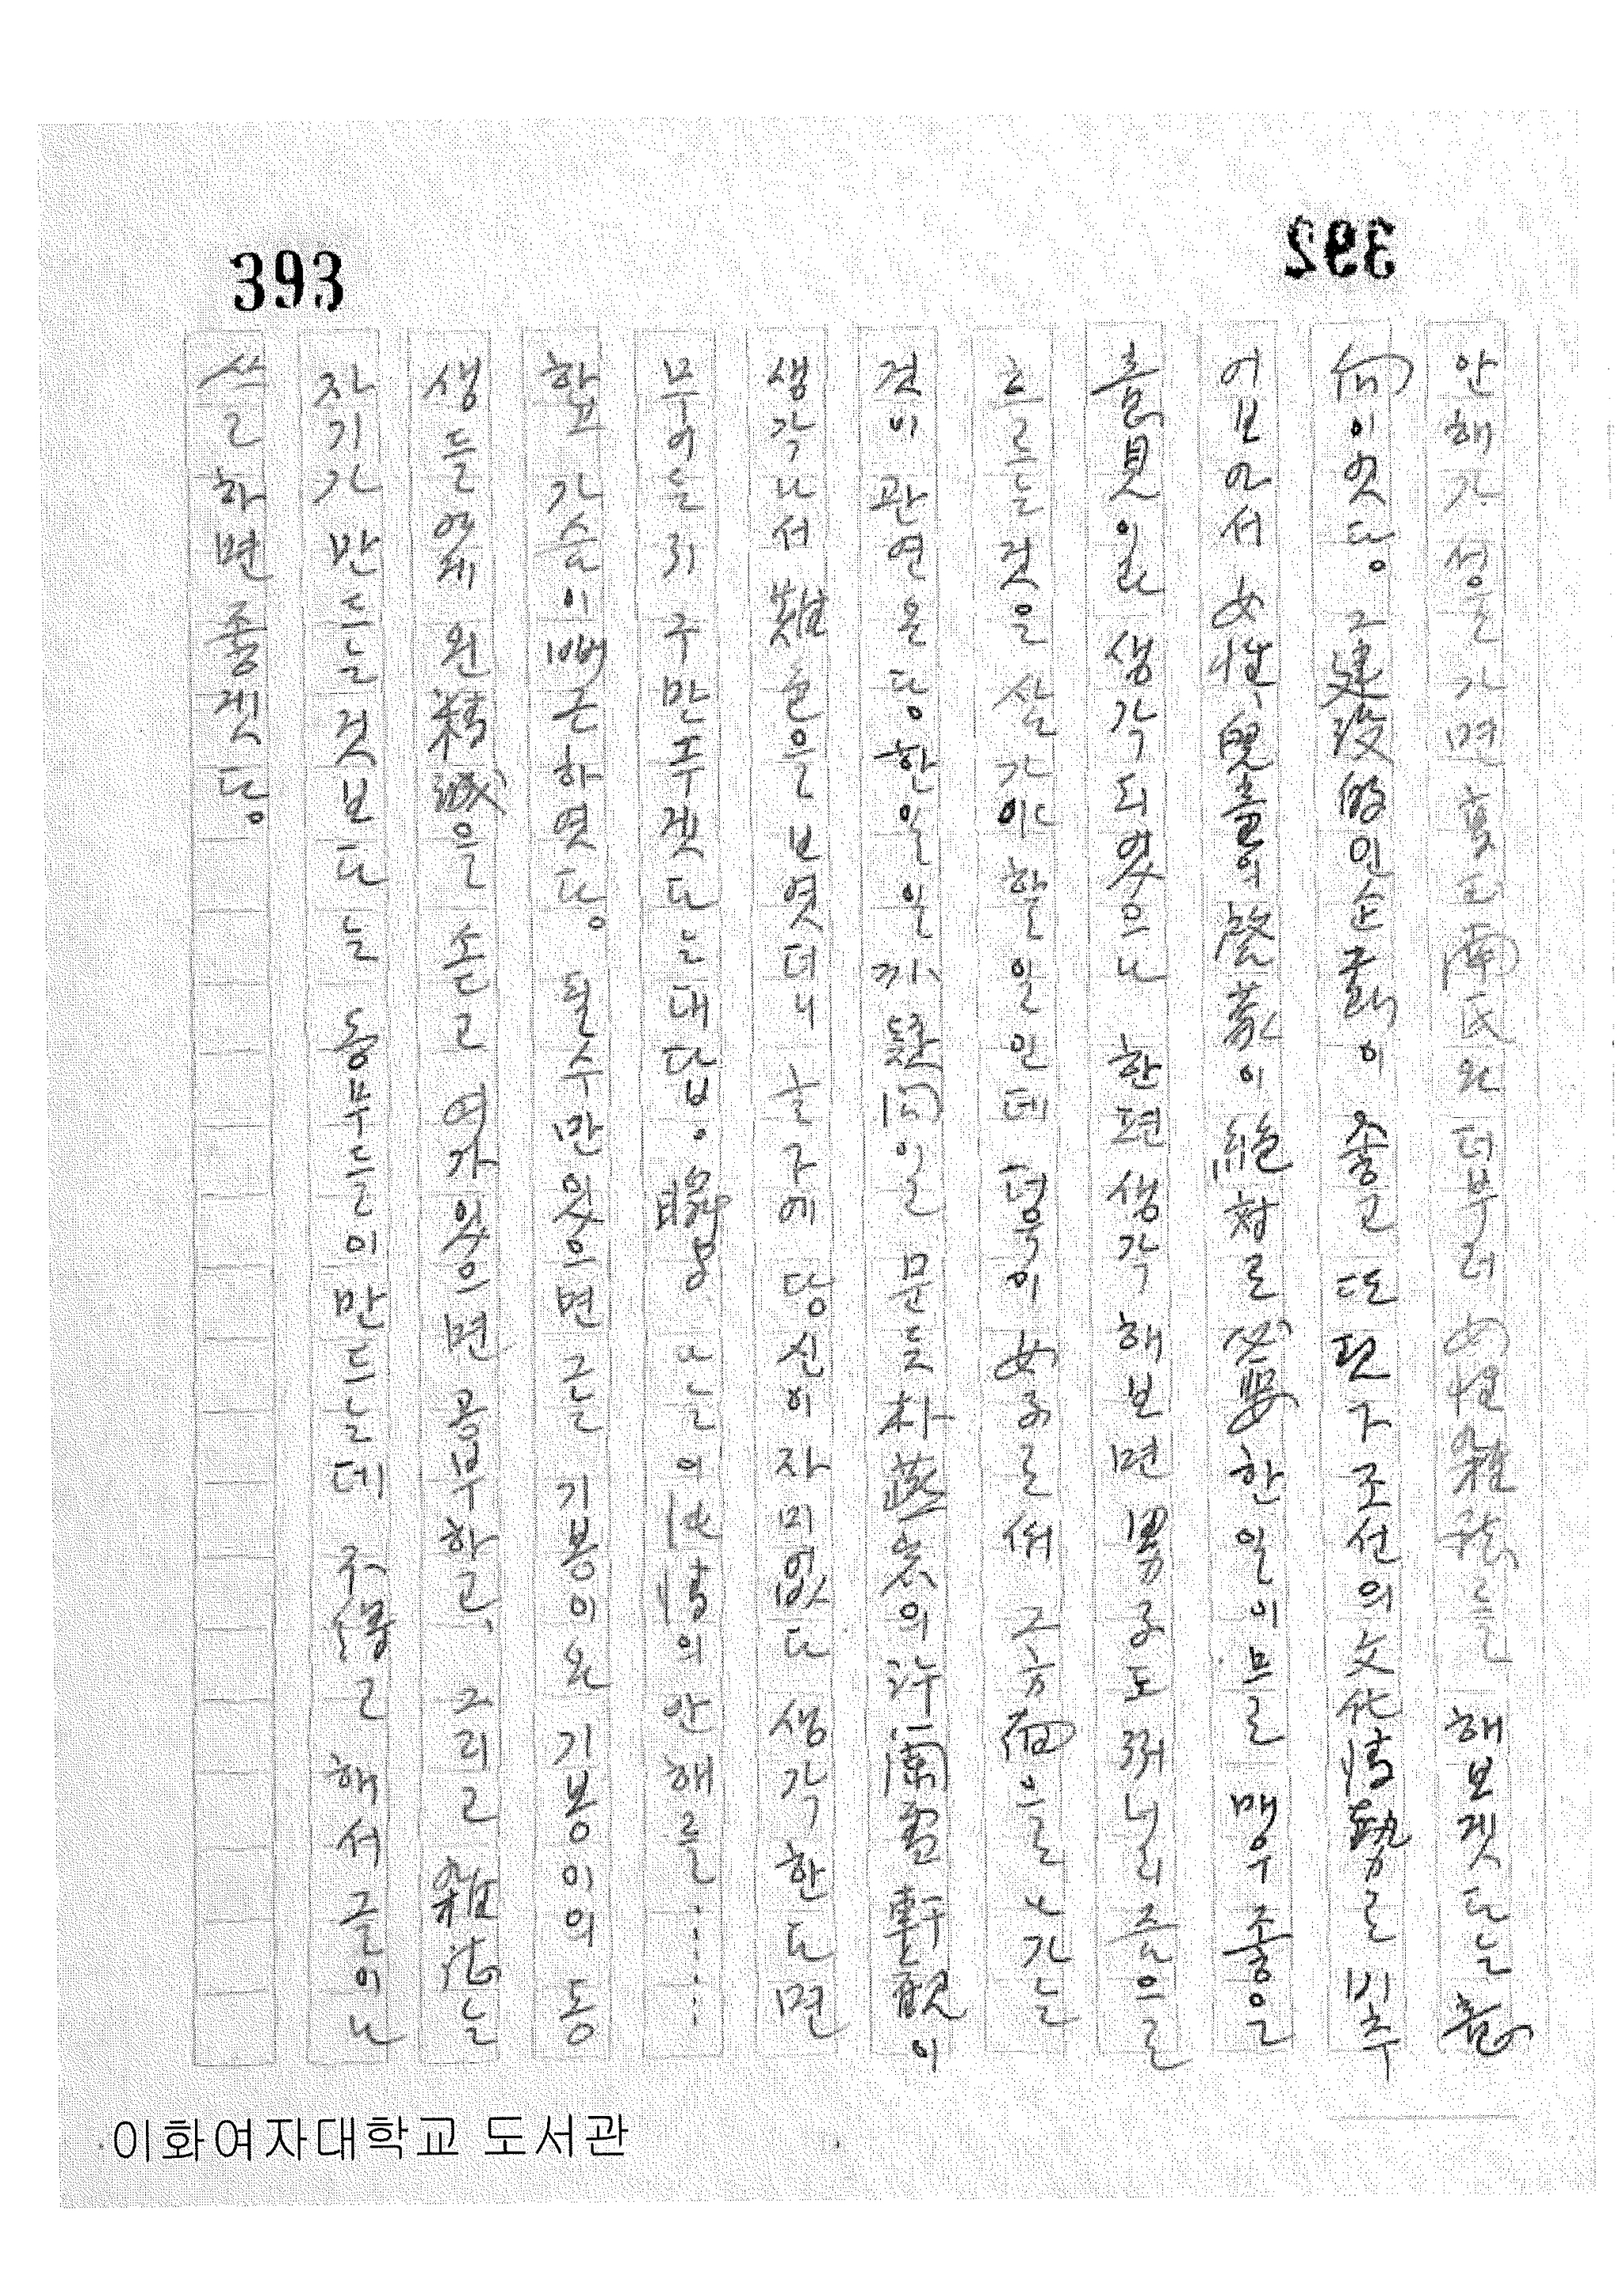 393
392
안해가 성을 가면 高且兩氏와 더부러 女性雜誌를 해보겟다는 意
向이엿다. 그 建設的인 企劃이 좋고 또 편자 조선의 文化情勢로 비추
어보아서 女性, 兒童의 啓蒙이 絶対로 必要한 일이므로 매우 좋은
意見인 생각되엿으나 한편 생각해보면 男子도 어려니리즘으로
흐르는 것을 삼가야 할 일인데 더욱이 女子로서 그 方面으로 나가는
것이 관연 온당한 일일까 疑问일 문득 朴蓮의 許蘭雪軒觀이
생각나서 難色을 보엿더니 글구에 당신이 자미없다 생각한다면
무어들리 구만두겟다는 대답. 聰明 나는 의 情의 안해를……
할고 가슴이 빠근하엿다. 틸수만 있으면 그는 기봉이와 기봉이의 동
생들얘게 왼 精誠을 쏟고 여가 있으면 공부하고, 그리고 雜誌는
자기가 만드는 것보다는 동무들이 만드는데 주 를 해서 글이나
쓰고 하면 좋겟다.
이화여자대학교 도서관